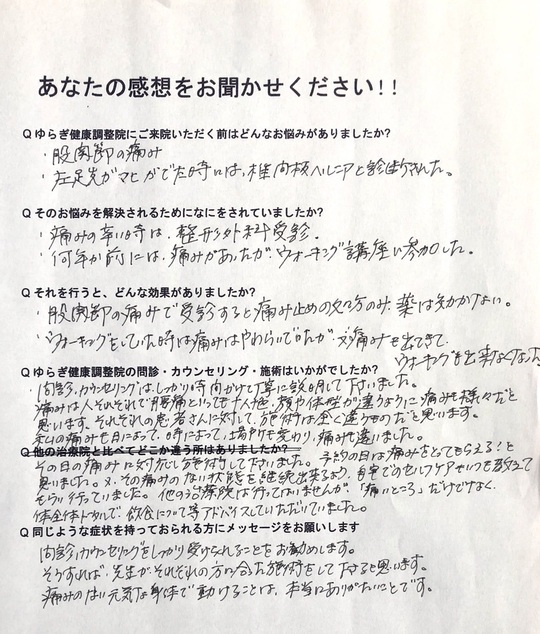 あなたの感想をお聞かせください!!
Q ゆらぎ健康調整院にご来院いただく前はどんなお悩みがありましたか?
・股関節の痛み
・左足先がマヒがでた時には、椎間板ヘルニアと診断された。
Q そのお悩みを解決されるためになにをされていましたか?
・痛みの辛い時は、整形外科受診。
・何年か前には、痛みがあったがウォーキング講座に参加した。
Q それを行うと、どんな効果がありましたか?
・股関節の痛みで受診すると痛み止めの処方のみ、薬は効かない。
・ウォーキングをしていた時は痛みはやわらいでたが、又痛みも出てきて
ウォーキングも出来なくなった
Q ゆらぎ健康調整院の問診・カウンセリング・施術はいかがでしたか?
・問診、カウンセリングは、しっかり時間かけて丁寧に説明して下さいました。
痛みは人それぞれで腰痛といっても十人十色、顔や体型が違うように痛みも様々だと
思います。それぞれの患者さんに対して、施術は全く違うものだと思います。
私の痛みも日によって、時によって、場所も変わり、痛みも違いました。
Q 他の治療院と比べてどこか違う所はありましたか?
その日の痛みに対応し施術して下さいました。予約の日は痛みをとてもらえる!と
思いました。又、その痛みのない状態を継続出来るよう、自宅でのセルフケアをいつも教えて
もらい行っていました。他の治療院は行ってはいませんが、「痛いところ」だけでなく、
体全体トータルで、飲食について等アドバイスしていただいていました。
Q 同じような症状を持っておられる方にメッセージをお願いします
問診、カウンセリングをしっかり受けられることをお勧めします。
そうすれば、先生が、それぞれの方に合った施術をして下さると思います。
痛みのない元気な身体で動けることは、本当にありがたいことです。